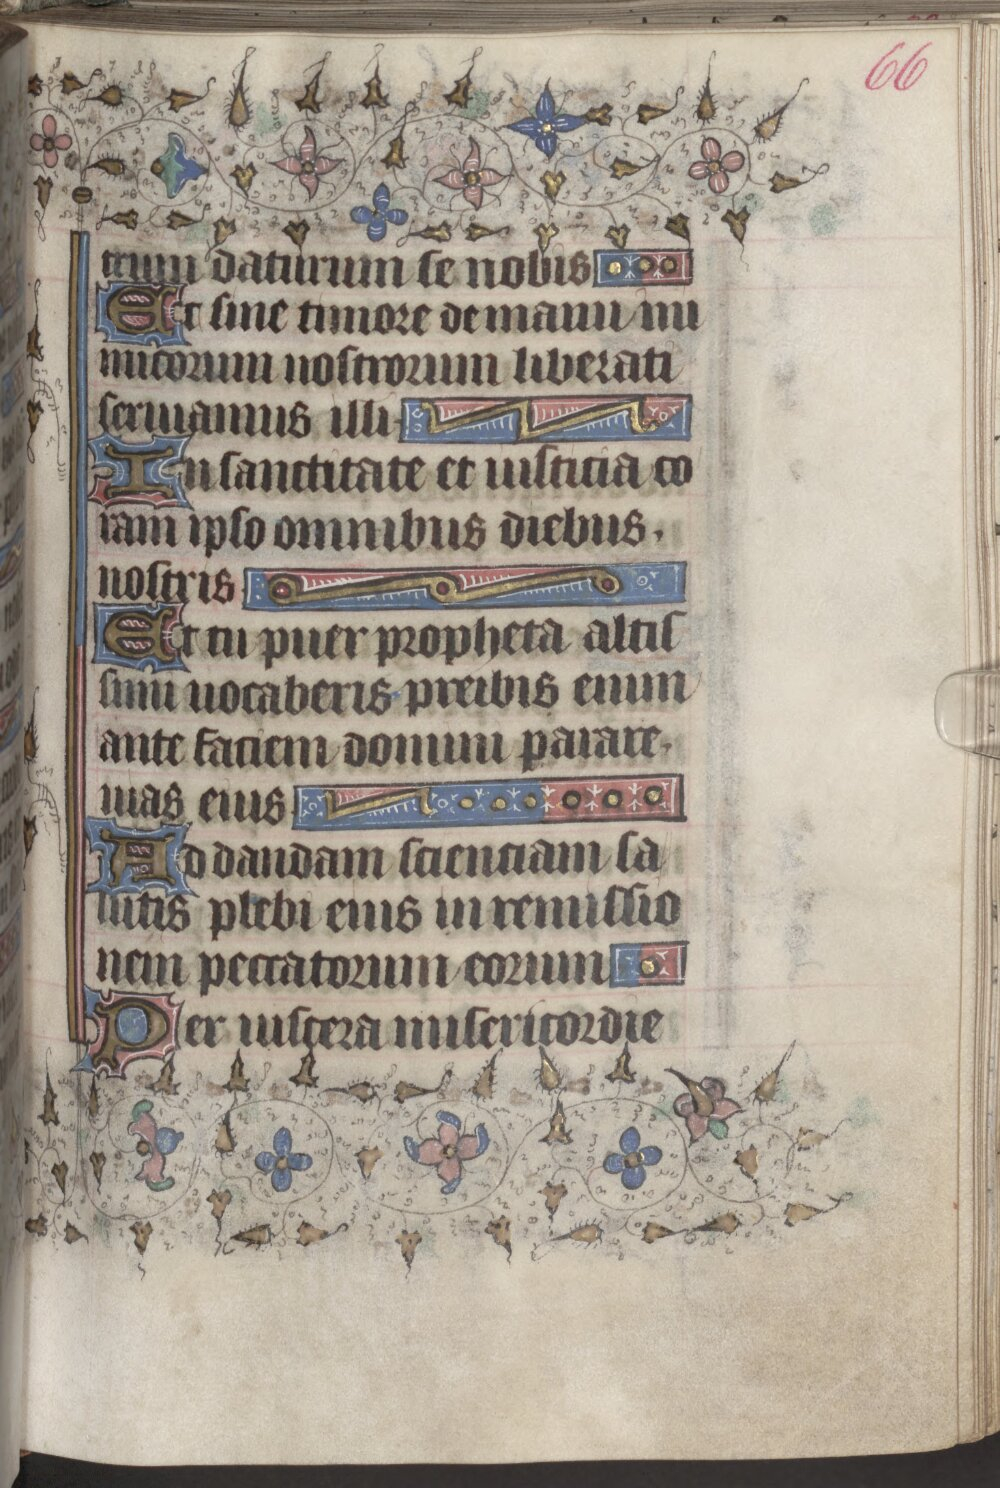 66
trum daturum se nobis
Et sine timore de manu ini
micorum nostrorum liberati
seruiamus illi
In sanctitate et iusticia co
ram ipso omnibus diebus.
nostris
Et tu puer propheta altis
simi uocaberis preibis enim
ante faciem domini parare.
uias eius
Ad dandam scienciam sa
lutis plebi eius in remissio
nem peccatorum eorum
Per uiscera misericordie